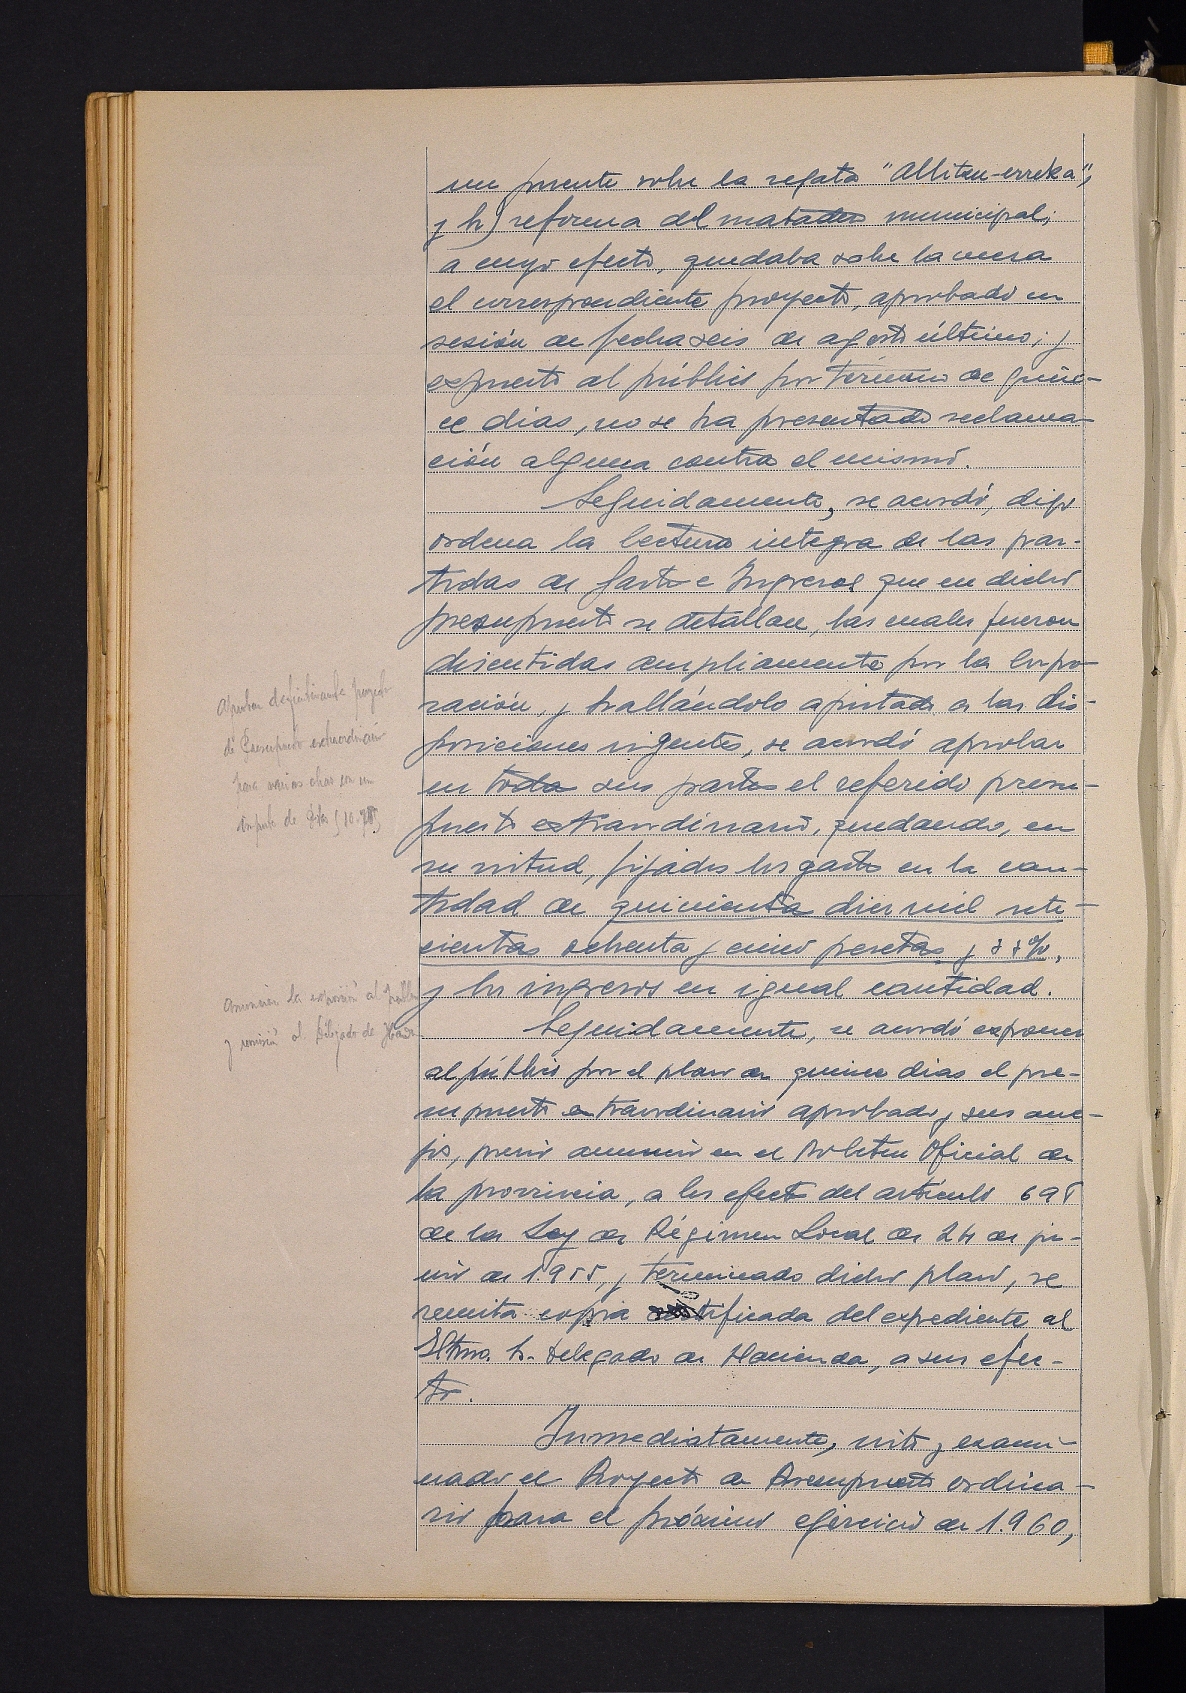 un puente sobre la regata "Allitzu-erreka",
y h) reforma del matadero municipal;
a cuyo efecto, quedaba sobre la mesa
el correspondiente proyecto, aprobado en
sesión de fecha seis de agosto último; y
expuesto al público por término de quin-
ce dias, no se ha presentado reclama-
ción alguna contra el mismo.
Seguidamente, se acordó,
ordena la lectura integra de las par-
tidas de Gastos e Ingresos que en dicho
presupuesto se detallan, las cuales fueron
discutidas ampliamente por la Corpo-
ración, y hallándolo ajustado a las dis-
posiciones vigentes, se acordó aprobar
en todas sus partes el referido presu-
puesto extraordinario, quedando, en
su virtud, fijados los gastos en la can-
tidad de quinientas diez mil sete-
cientas ochenta y cinco pesetas y
y los ingresos en igual cantidad.
Seguidamente, se acordó exponer
al público por el plazo de quince dias el pre-
supuesto extraordinario aprobado y sus ane-
jos, previo anuncio en el Boletin Oficial de
la provincia, a los efectos del artículo 698
de la Ley de Régimen Local de 24 de ju-
nio de 1.955, y terminado dicho plazo, se
remita copia certificada del expediente al
Iltmo. Sr. Delegado de Hacienda, a sus efec-
tos.
Inmediatamente, visto y exami-
nado el Proyecto de Presupuesto ordina-
rio para el próximo ejercicio de 1.960,
Aprobar definitivamente proyecto
de Presupuesto extraordinario
para varias obras con un
importe de Ptas
Anunciar la exposición al público
y remisión al Delegado de Hacienda